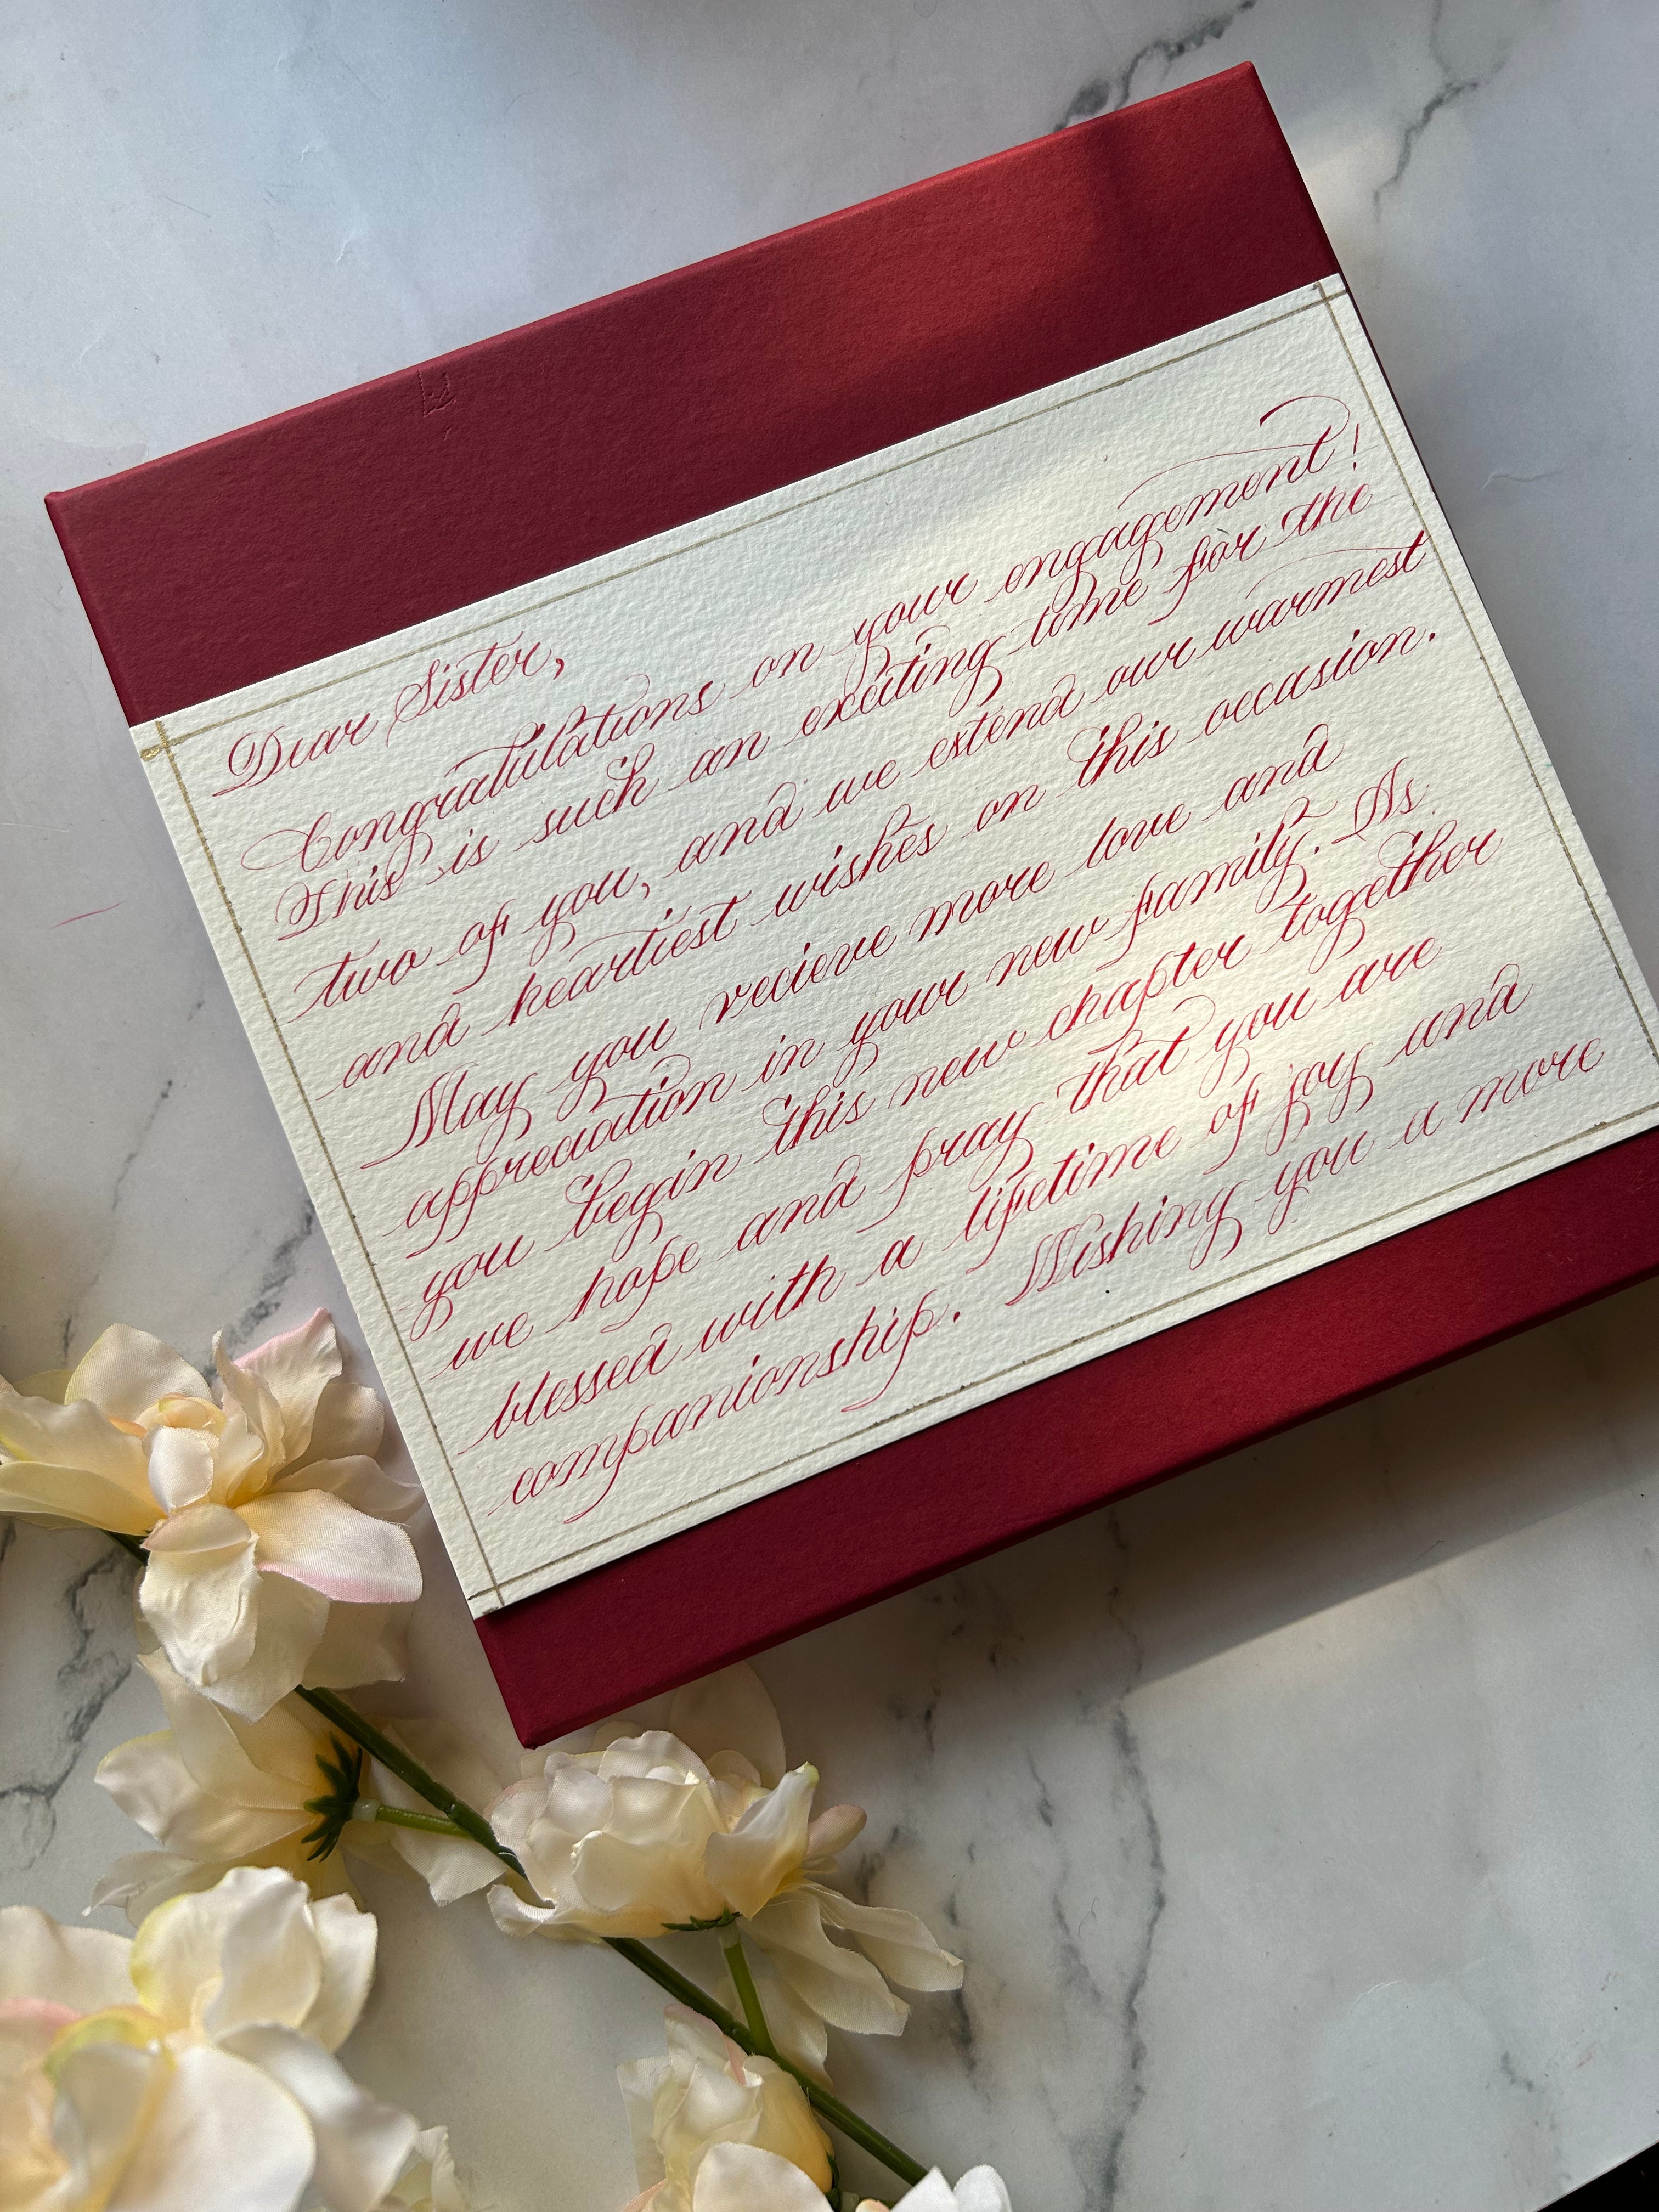 Dear Sister,
Congratulations on your engagement!
This is such an exciting time for the
two of you, and we extend our warmest
and heartiest wishes on this occasion.
May you recieve more love and
appreciation in your new family. As
you begin this new chapter together
we hope and pray that you are
blessed with a lifetime of joy and
companionship. Wishing you a more